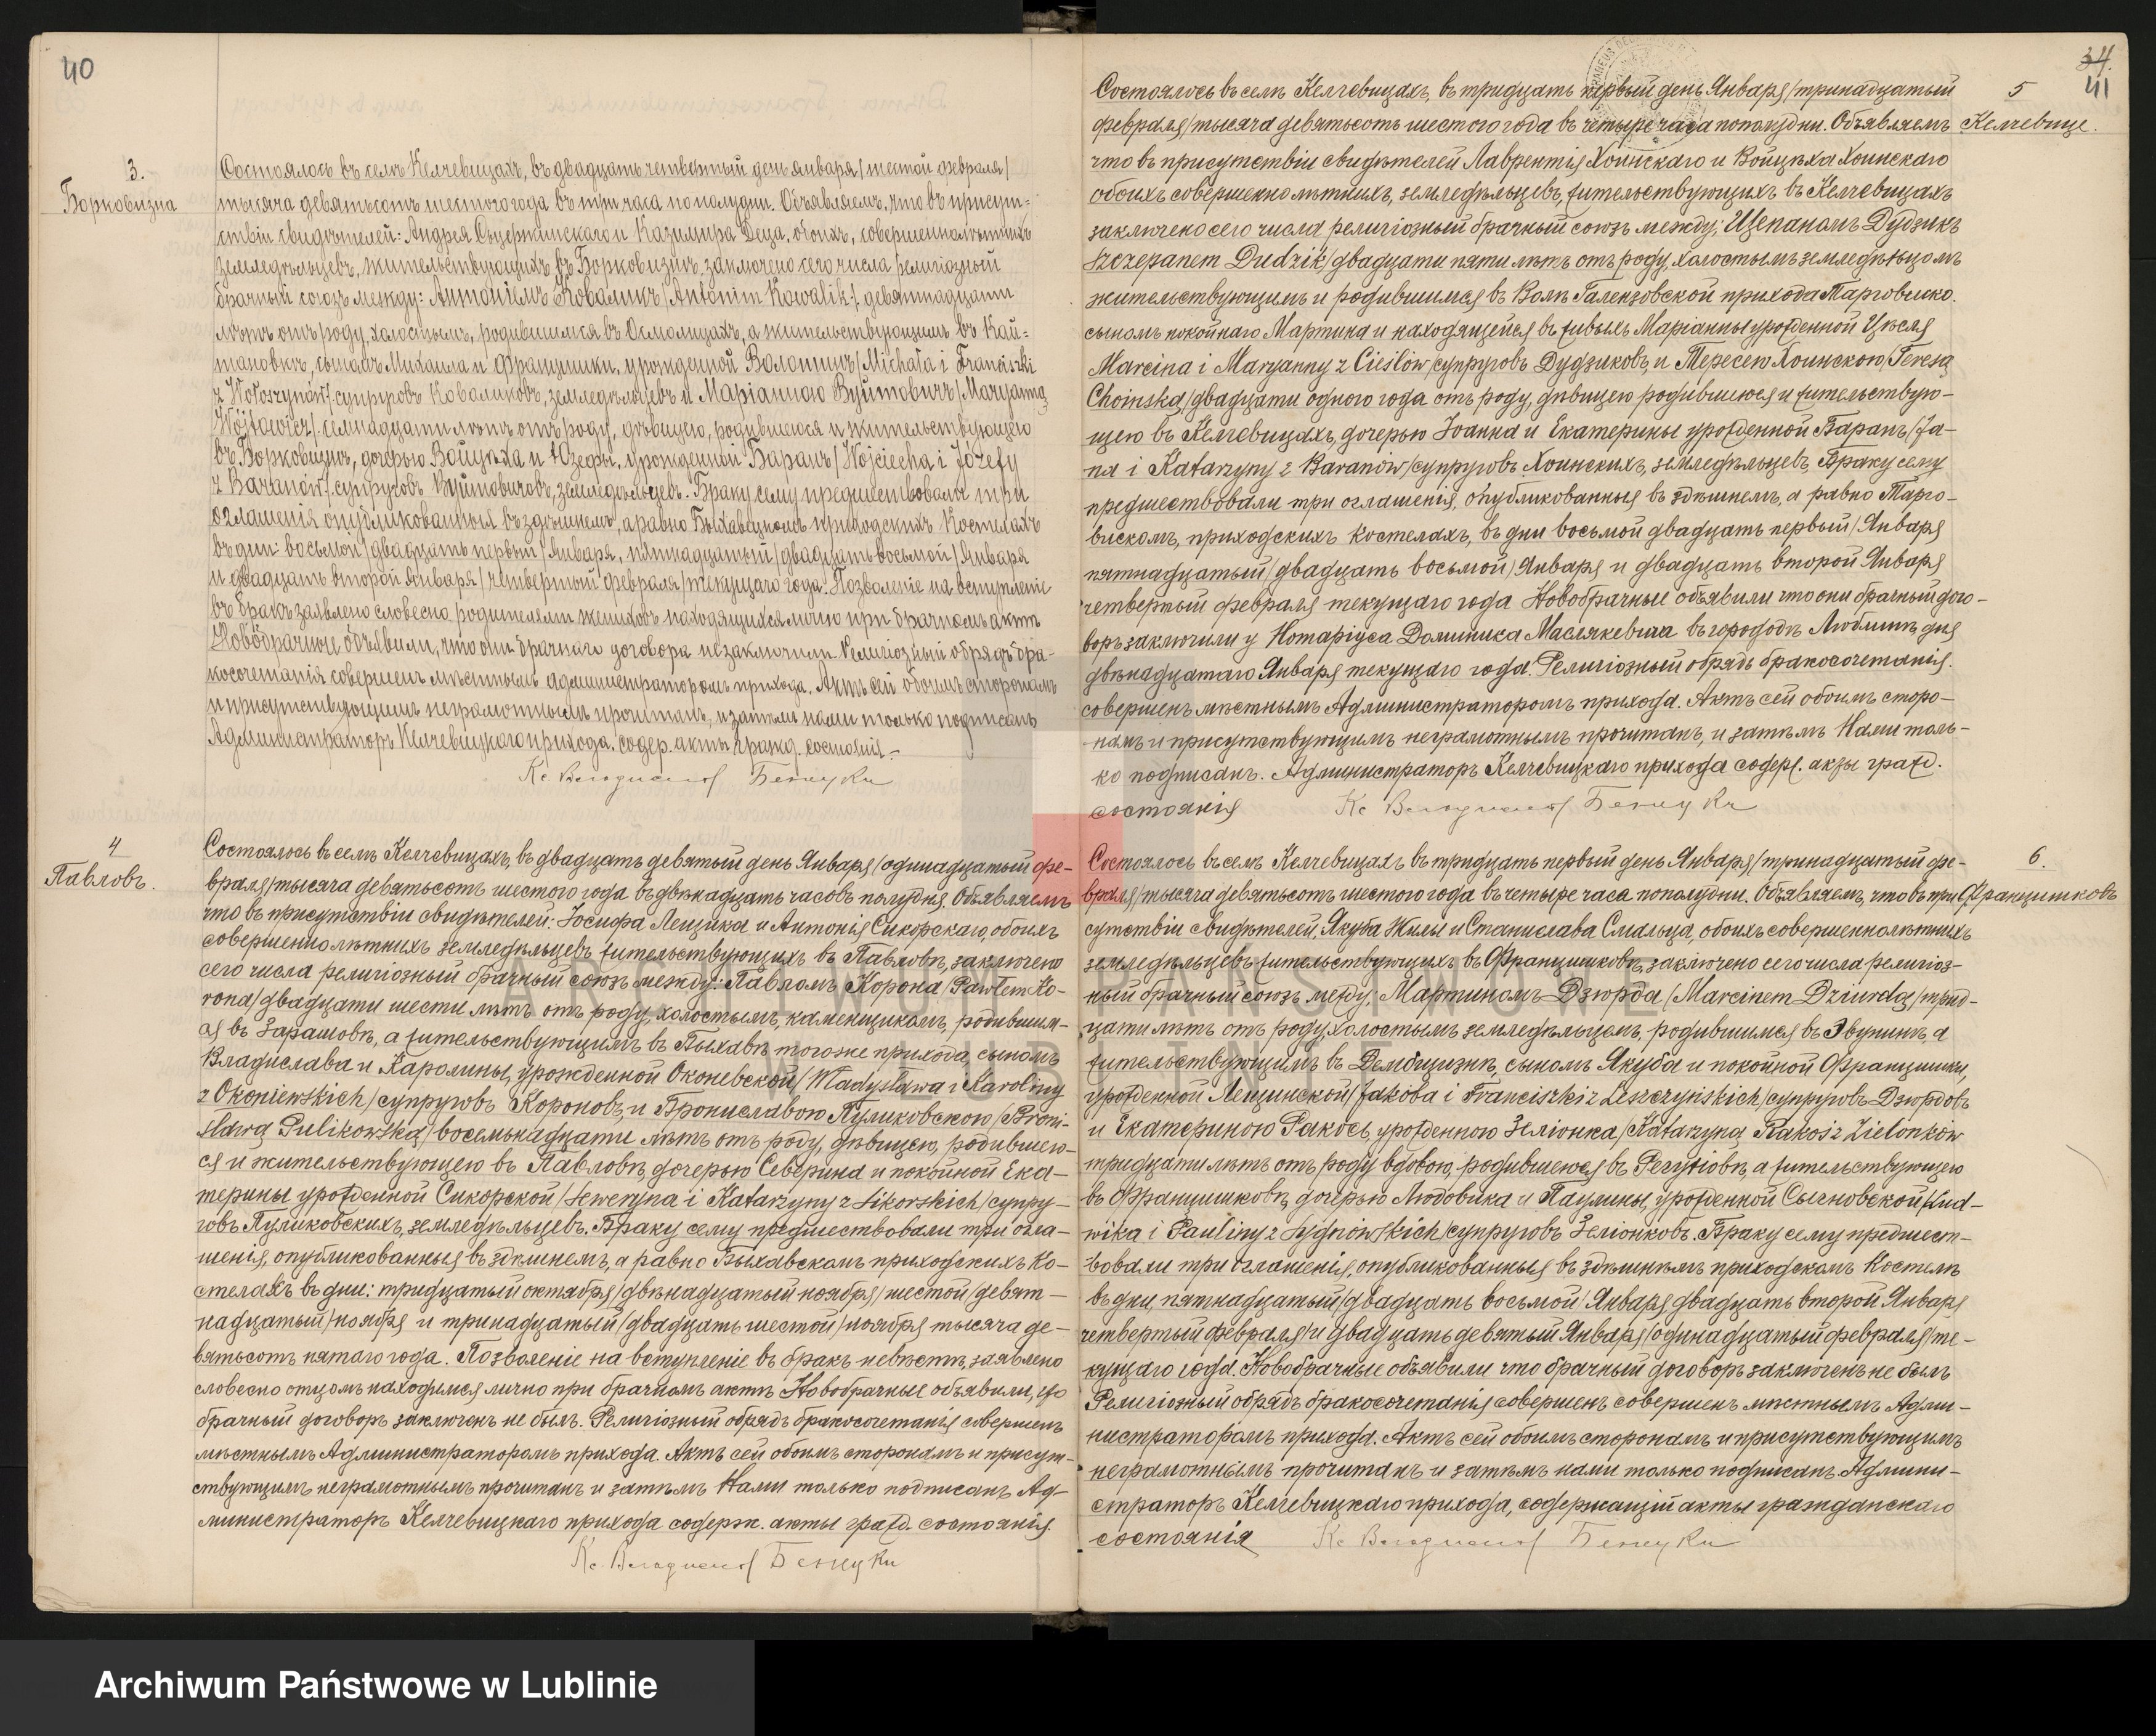 40
3.
Борковизна
Состоялось въ селѣ Келчевицахъ, въ двадцать четвертый день января /шестой февраля/
тысяча девятьсотъ шестого года въ три часа по полудни. Объявляемъ, что въ присут-
ствіи свидѣтелей: Андрея и Казимира Деца, обоихъ, совершеннолѣтнихъ
земледѣльцевъ, жительствующихъ въ Борковизнѣ, заключено сего числа религіозный
брачный союзъ между: Антоніемъ Коваликъ /Antonim Kowalik/ девятнадцати
лѣтъ отъ роду, холостымъ, родившимся въ Осмолицахъ, а жительствующимъ въ Кай-
тановкѣ, сыномъ Михаила и Францишки, урожденной Волошинъ /Michała i Franciszki
z Wołoszynów/ супруговъ Коваликовъ, земледѣльцевъ и Маріанною Вуйтовичъ /Maryanną
Wójtowicz/ семнадцати лѣтъ отъ роду, дѣвицею, родившеюся и жительствующею
въ Борковизнѣ, дочерью Войцѣха и Юзефы, урожденной Баранъ /Wojciecha i Józefy
z Baranów/ супруговъ Вуйтовичовъ, земледѣльцевъ. Браку сему предшествовали три
оглашенія опубликованныя въ здѣшнемъ, а равно Быхавскомъ приходскихъ Костелахъ
въ дни: восьмой /двадцать первый/ Января, пятнадцатый /двадцать восьмой/ Января
и двадцать второй Января /четвертый февраля/ текущаго года. Позволеніе на вступленіе
въ бракъ заявлено словесно родителями находящихся лично при брачномъ актѣ
Новобрачные объявили, что они брачнаго договора не заключили. Религіозный обрядъ бра-
косочетанія совершенъ мѣстнымъ администраторомъ прихода. Актъ сей обоимъ сторонамъ
и присутствующимъ неграмотнымъ прочитанъ, и затѣмъ нами только подписанъ
Администраторъ Келчевицкаго прихода. содер. акты гражд. состоянія.-
Кс.
4
Павловъ.
Состоялось въ селѣ Келчевицахъ, въ двадцать девятый день Января /одинадцатый фе-
враля/ тысяча девятьсотъ шестого года въ двѣнадцать часовъ полудня. Объявляемъ
что въ присутствіи свидѣтелей: Іосифа Лещика и Антонія Сикорскаго, обоихъ
совершеннолѣтнихъ земледѣльцевъ жительствующихъ въ Павловѣ, заключено
сего числа религіозный брачный союзъ между: Павломъ Корона /Pawłem Ko-
rona/ двадцати шести лѣтъ отъ роду, холостымъ, каменщикомъ, родившим-
ся въ Зарашовѣ, а жительствующимъ въ Быхавѣ тогоже прихода, сыномъ
Владислава и Каролины, урожденной Оконевской /Władysława i Karoliny
z Okoniewskich/ супруговъ Короновъ, и Брониславою Пуликовскою /Broni-
sławą Pulikowską/ восемьнадцати лѣтъ отъ роду, дѣвицею, родившею-
ся и жительствующею въ Павловѣ, дочерью Северина и покойной Ека-
терины урожденной Сикорской /Seweryna i Katarzyny z Sikorskich/ супру-
говъ Пуликовскихъ, земледѣльцевъ. Браку сему предшествовали три огла-
шенія, опубликованныя въ здѣшнемъ, а равно Быхавскомъ приходскихъ Ко-
стелахъ въ дни: тридцатый октября /двѣнадцатый ноября/ шестой /девят-
надцатый/ ноября и тринадцатый /двадцать шестой/ ноября тысяча де-
вятьсотъ пятаго года. Позволеніе на вступленіе въ бракъ невѣстѣ, заявлено
словесно отцомъ находимся лично при брачномъ актѣ Новобрачные объявили, что
брачный договоръ заключенъ не былъ. Религіозный обрядъ бракосочетанія совершенъ
мѣстнымъ Администраторомъ прихода. Актъ сей обоимъ сторонамъ и присут-
ствующимъ неграмотнымъ прочитанъ и затѣмъ Нами только подписанъ Ад-
министраторъ Келчевицкаго прихода содерж. акты гражд. состоянія.
Кс.
34.
41
5
Келчевице.
Состоялось въ селѣ Келчевицахъ, въ тридцать первый день Января /тринадцатый
февраля/ тысяча девятьсотъ шестого года въ четыре часа пополудни. Объявляемъ
что въ присутствіи свидѣтелей Лаврентія Хоинскаго и Войцѣха Хоинскаго
обоихъ совершеннолѣтнихъ, земледѣльцевъ, жительствующихъ въ Келчевицахъ
заключено сего числа религіозный брачный союзъ между: Щепаномъ Дудзикъ
Szczepanem Dudzik/ двадцати пяти лѣтъ отъ роду, холостымъ земледѣльцомъ
жительствующимъ и родившимся въ Волѣ Галензовской прихода Тарговиско.
сыномъ покойнаго Мартина и находящейся въ живыхъ Маріанны урожденной Цѣсля
Marcina i Maryanny z Cieślów /супруговъ Дудзиковъ, и Тересею Хоинскою /Teresą
Choinską/ двадцати одного года отъ роду, дѣвицею родившеюся и жительствую-
щею въ Келчевицахъ, дочерью Іоанна и Екатерины урожденной Баранъ /Ja-
na i Katarzyny z Baranów /супруговъ Хоинскихъ, земледѣльцевъ, Браку сему
предшествовали три оглашенія, опубликованныя въ здѣшнемъ, а равно Тарго-
вискомъ, приходскихъ Костелахъ, въ дни восьмой двадцать первый/ Января
пятнадцатый /двадцать восьмой/ Января и двадцать второй Января
четвертый февраля текущаго года Новобрачные объявили что они брачный дого-
воръ заключили у Нотаріуса Доминика Маслякевича въ городѣ Люблинѣ дня
двѣнадцатаго Января текущаго года. Религіозный обрядъ бракосочетанія.
совершенъ мѣстнымъ Администраторомъ прихода. Актъ сей обоимъ сторо-
намъ и присутствующимъ неграмотнымъ прочитанъ, и затѣмъ Нами толь-
ко подписанъ. Администраторъ Келчевицкаго прихода содерж. акты гражд.
состоянія Кс.
6.
Францишковъ
Состоялось въ селѣ Келчевицахъ въ тридцать первый день Января /тринадцатый фе-
враля/ тысяча девятьсотъ шестого года въ четыре часа пополудни. Объявляемъ, что въ при
сутствіи свидѣтелей, Якуба Жилы и Станислава Смальца, обоихъ совершеннолѣтнихъ
земледѣльцевъ жительствующихъ въ Францишковѣ, заключено сего числа религіоз-
ный брачный союзъ между, Мартиномъ Дзюрда /Marcinem Dziurdą/ трид-
цати лѣтъ отъ роду, холостымъ земледѣльцемъ, родившимся въ а
жительствующимъ въ сыномъ Якуба и покойной Францишки,
урожденной Лещинской /Jakóba i Franciszki z Leszczyńskich/ супруговъ Дзюрдовъ
и Екатериною Ракось, урожденною Зеліонка /Katarzyną Rakoś z Zielonków
тридцати лѣтъ отъ роду вдовою, родившеюся въ а жительствующею
въ Францишковѣ, дочерью Людовика и Паулины, урожденной Сысновской /Lud-
wika i Pauliny z супруговъ Зеліонковъ. Браку сему предшест-
вовали три оглашенія, опубликованныя въ здѣшнемъ приходскомъ Костелѣ
въ дни, пятнадцатый /двадцать восьмой/ Января, двадцать второй Января
четвертый февраля /и двадцать девятый Января /одинадцатый февраля/ те-
кущаго года. Новобрачные объявили что брачный договоръ заключенъ не былъ
Религіозный обрядъ бракосочетанія совершенъ совершенъ мѣстнымъ Адми-
нистраторомъ прихода. Актъ сей обоимъ сторонамъ и присутствующимъ
неграмотнымъ прочитанъ и затѣмъ нами только подписанъ Админи-
страторъ Келчевицкаго прихода, содержащій акты гражданскаго
состоянія Кс.
ARCHIWUM PAŃSTWOWE
W LUBLINIE
Archiwum Państwowe w Lublinie